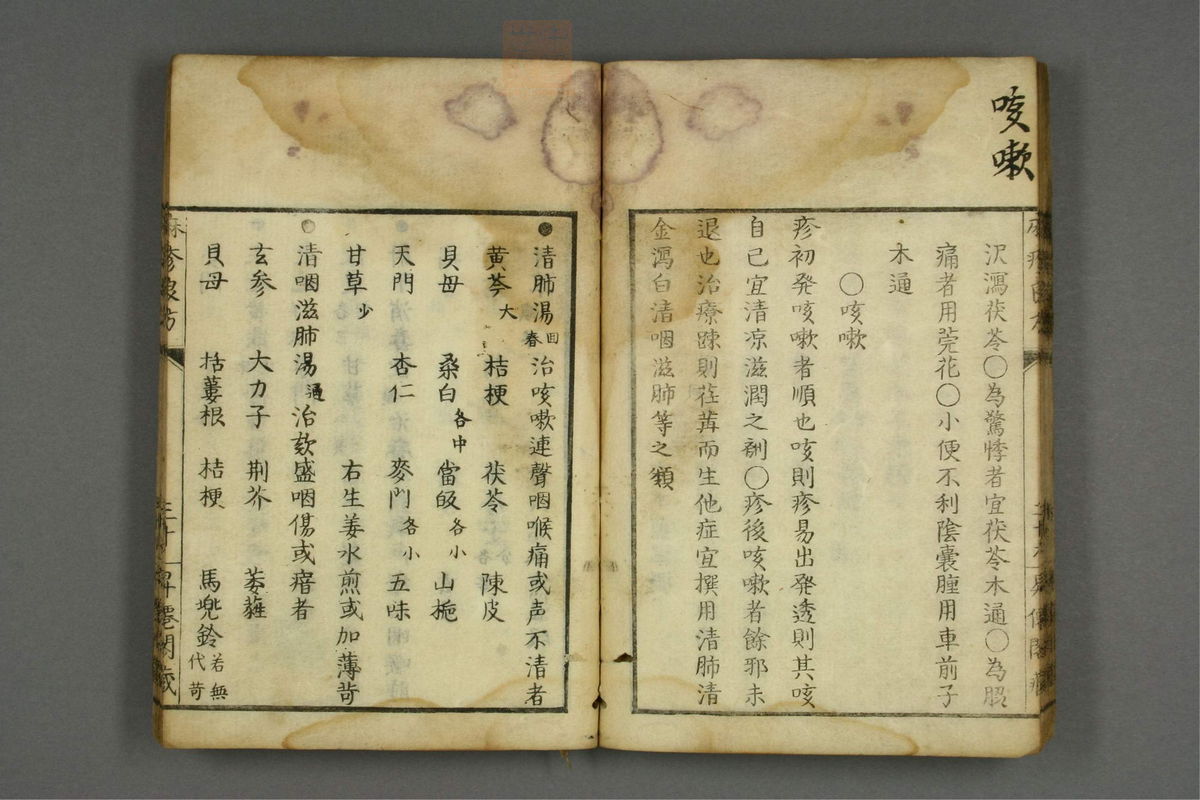 咳嗽
沢瀉茯苓〇為驚悸者宜茯苓木通〇為腹
痛者用莞花〇小便不利陰嚢腫用車前子
木通
〇咳嗽
疹初発咳嗽者順也咳則疹易出発透則其咳
自已宜清凉滋潤之剤〇疹後咳嗽者餘邪未
退也治療踈則荏苒而生他症宜撰用清肺清
金瀉白清咽滋肺等之類
●清肺湯 回春 治咳嗽連聲咽喉痛或声不清者
黄芩大 桔梗 茯苓 陳皮
貝母 桑白各中 當皈各小 山梔
天門 杏仁 麥門各小 五味
甘草少 右生姜水煎或加薄苛
清咽滋肺湯 治欬盛咽傷或瘖者
玄参 大力子 荆芥 葳蕤
貝母 括蔞根 桔梗 馬兜鈴 若無代苛